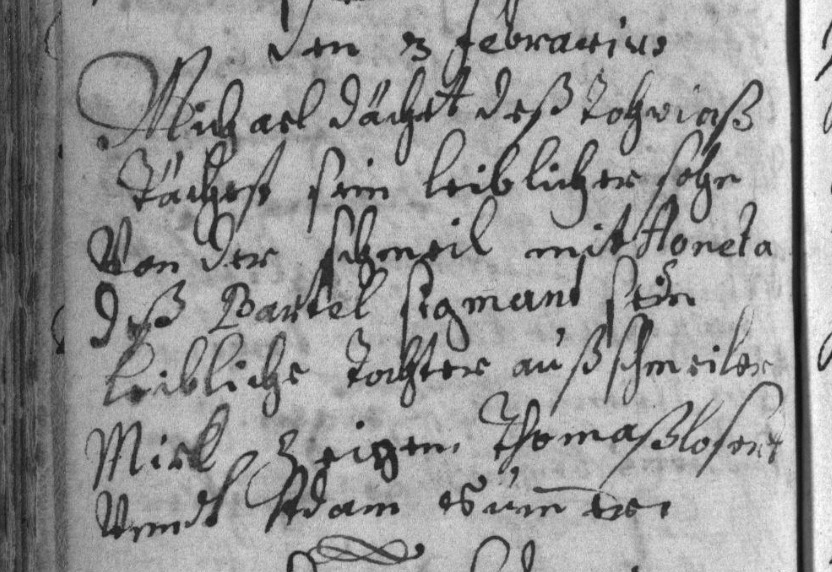 den 3 febrarius
Michael Dächet deß Tohviaß
Tächest sein leiblicher sohn
Von der schmeil mit Aoneta
deß Bartel sigmant sein
leibliche Tochter auß schmeiler
Mick Zeigen Thomaß losert
Vnndt Adam